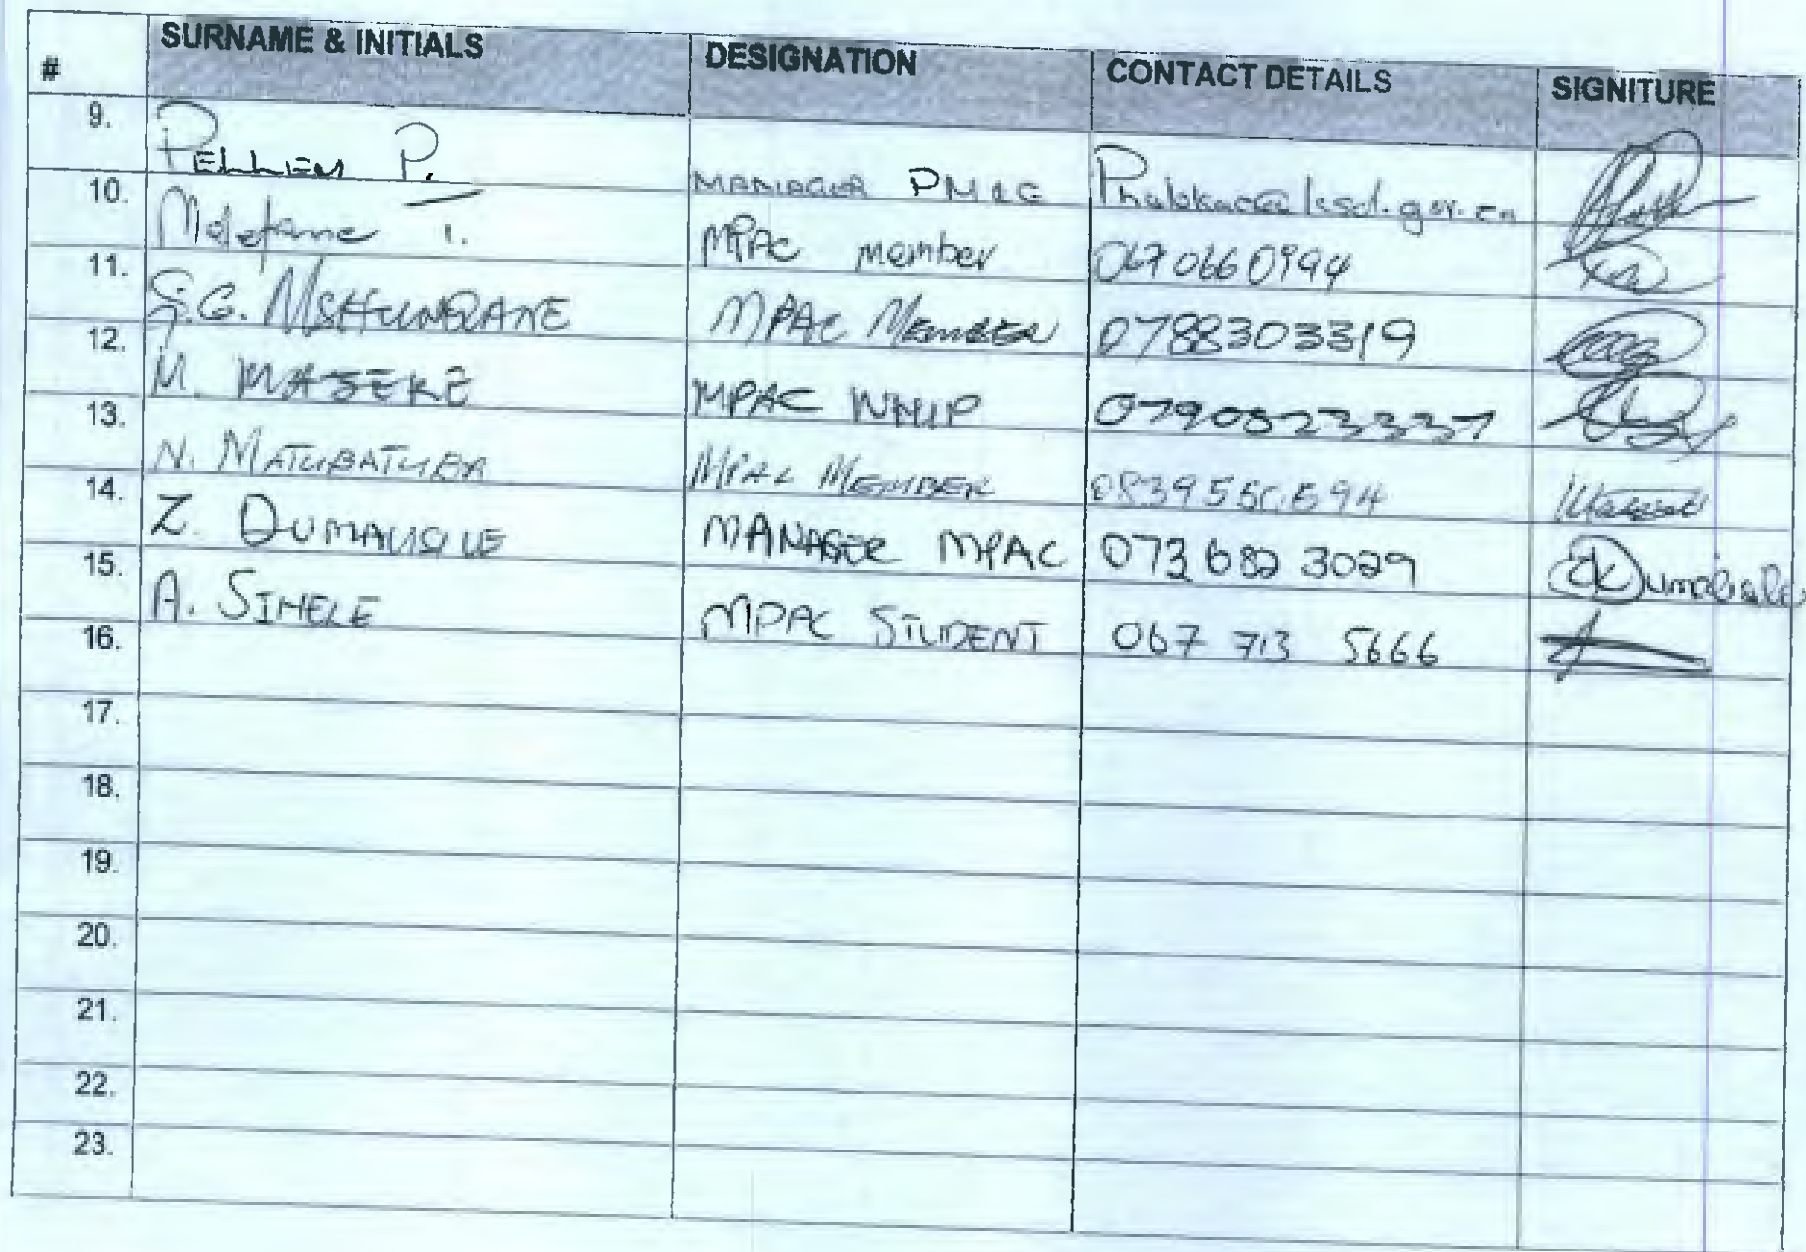 # SURNAME & INITIALS DESIGNATION CONTACT DETAILS SIGNITURE
9. PELLEM P. MANAGER PMAC
10. Molefane I. MPAC member 0670660994
11. G.G. MSHUNQANE MPAC MEMBER 0788303319
12. M. MASEKE MPAC WHIP 0790823337
13. N. MATUBATUBA MPAC MEMBER 0839560594
14. Z. DUMALISILE MANAGER MPAC 073 682 3029
15. A. SIHELE MPAC STUDENT 067 713 5666
16.
17.
18.
19.
20.
21.
22.
23.